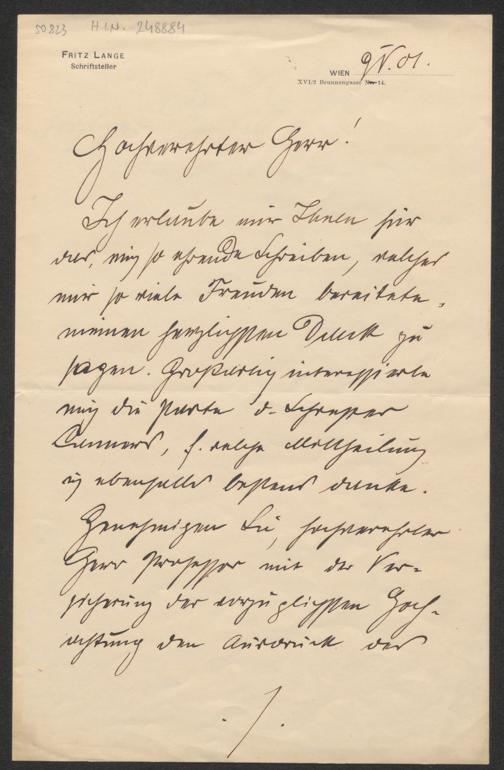 50823 H.I.N. 248884
FRITZ LANGE
Schriftsteller
WIEN 9/V. 01.
XVI/2 Brunnengasse No 14.
Hochverehrter Herr!
Ich erlaube mir Ihnen für
das, mich so ehrende Schreiben, welches
mir so viele Freuden bereitete,
meinen herzlichsten Dank zu
sagen. Großartig interessierte
mich die Parte d. Schwester
Lanners, f. welche Mittheilung
ich ebenfalls bestens danke.
Genehmigen Sie, hochverehrter
Herr Professor mit der Ver-
sicherung der vorzüglichsten Hoch-
achtung den Ausdruck des
./.